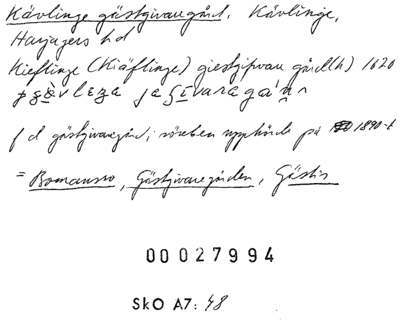 Kävlinge gästgivaregård, Kävlinge,
Harjagers hd
Kieflinge (Kiäflinge) giestgifvau gård(h) 1620
f d gästgivaregård, rörelsen upphörde på 1890-t
= Bomansro, Gästgivaregården, Gästis
00027994
SkO A7: 48